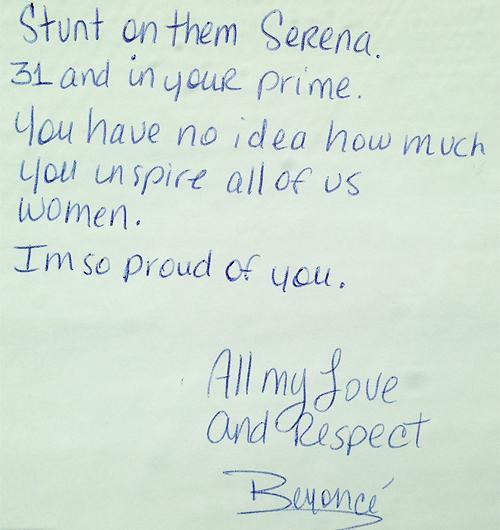 Stunt on them Serena.
31 and in your prime.
You have no idea how much
you inspire all of us
women.
Im so proud of you.
All my Love
and Respect
Beyoncé